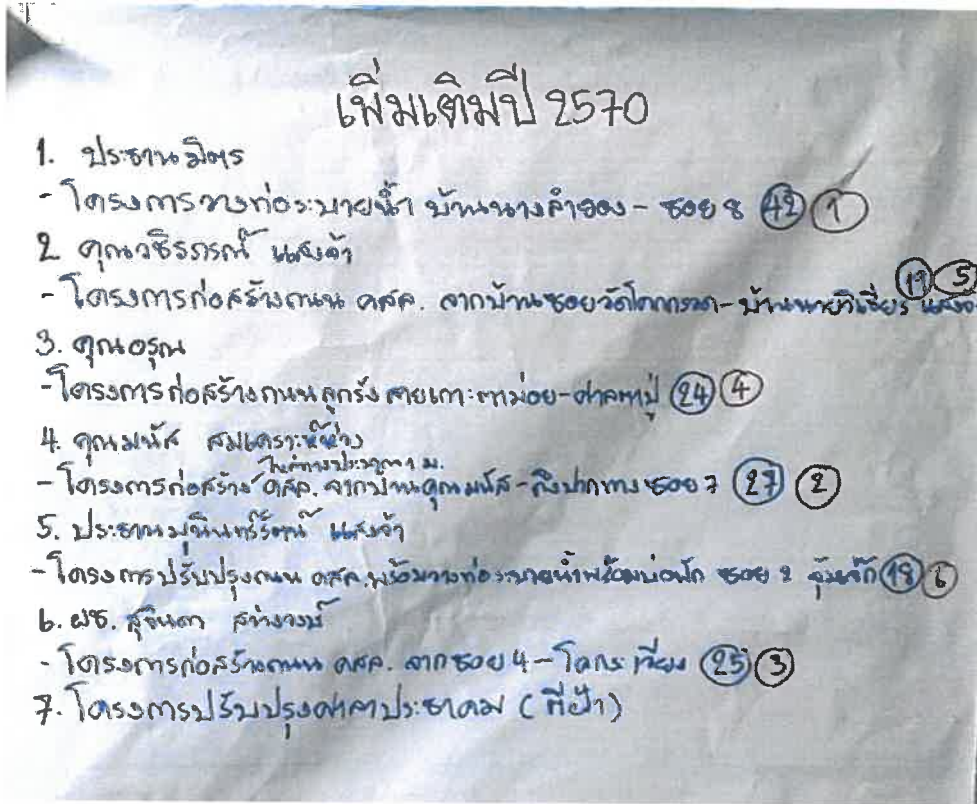 เพิ่มเติมปี 2570
1. ประธานมิตร
- โครงการวางท่อระบายน้ำ บ้านนางลำยอง - ซอย 8 42 1
2 คุณวชิรภรณ์ แสงจ้า
- โครงการก่อสร้างถนน คสล. จากบ้านซอยวัดโคก - บ้านนายวิเชียร แสงจ้า 19 5
3. คุณอรุณ
- โครงการก่อสร้างถนนลูกรัง สายเกาะตาม่อย - ศาลตาปู่ 24 4
4. คุณมนัส สมเคราะห์
- โครงการก่อสร้าง คสล. จากบ้านคุณมนัส - ถึงปากทาง ซอย 7 27 2
5. ประธานมุนินทร์รัตน์ แสงจ้า
- โครงการปรับปรุงถนน คสล. พร้อมวางท่อระบายน้ำพร้อมบ่อพัก ซอย 2 18 6
6. ผช. สุจินดา สว่างวงษ์
- โครงการก่อสร้างถนน คสล. จากซอย 4 - โคก 25 3
7. โครงการปรับปรุงศาลาประชาคม (ตีฝ้า)